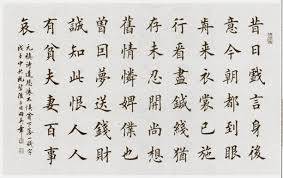 昔日戲言身後
意今朝都到眼
前來衣裳已施
行看盡針線猶
存未忍開尚想
舊情憐婢僕也
曾因夢送錢財
誠知此恨人人
有貧夫妻百事
哀
元稹詩遣悲懷 下落一賤字
戊子中秋於 田英章